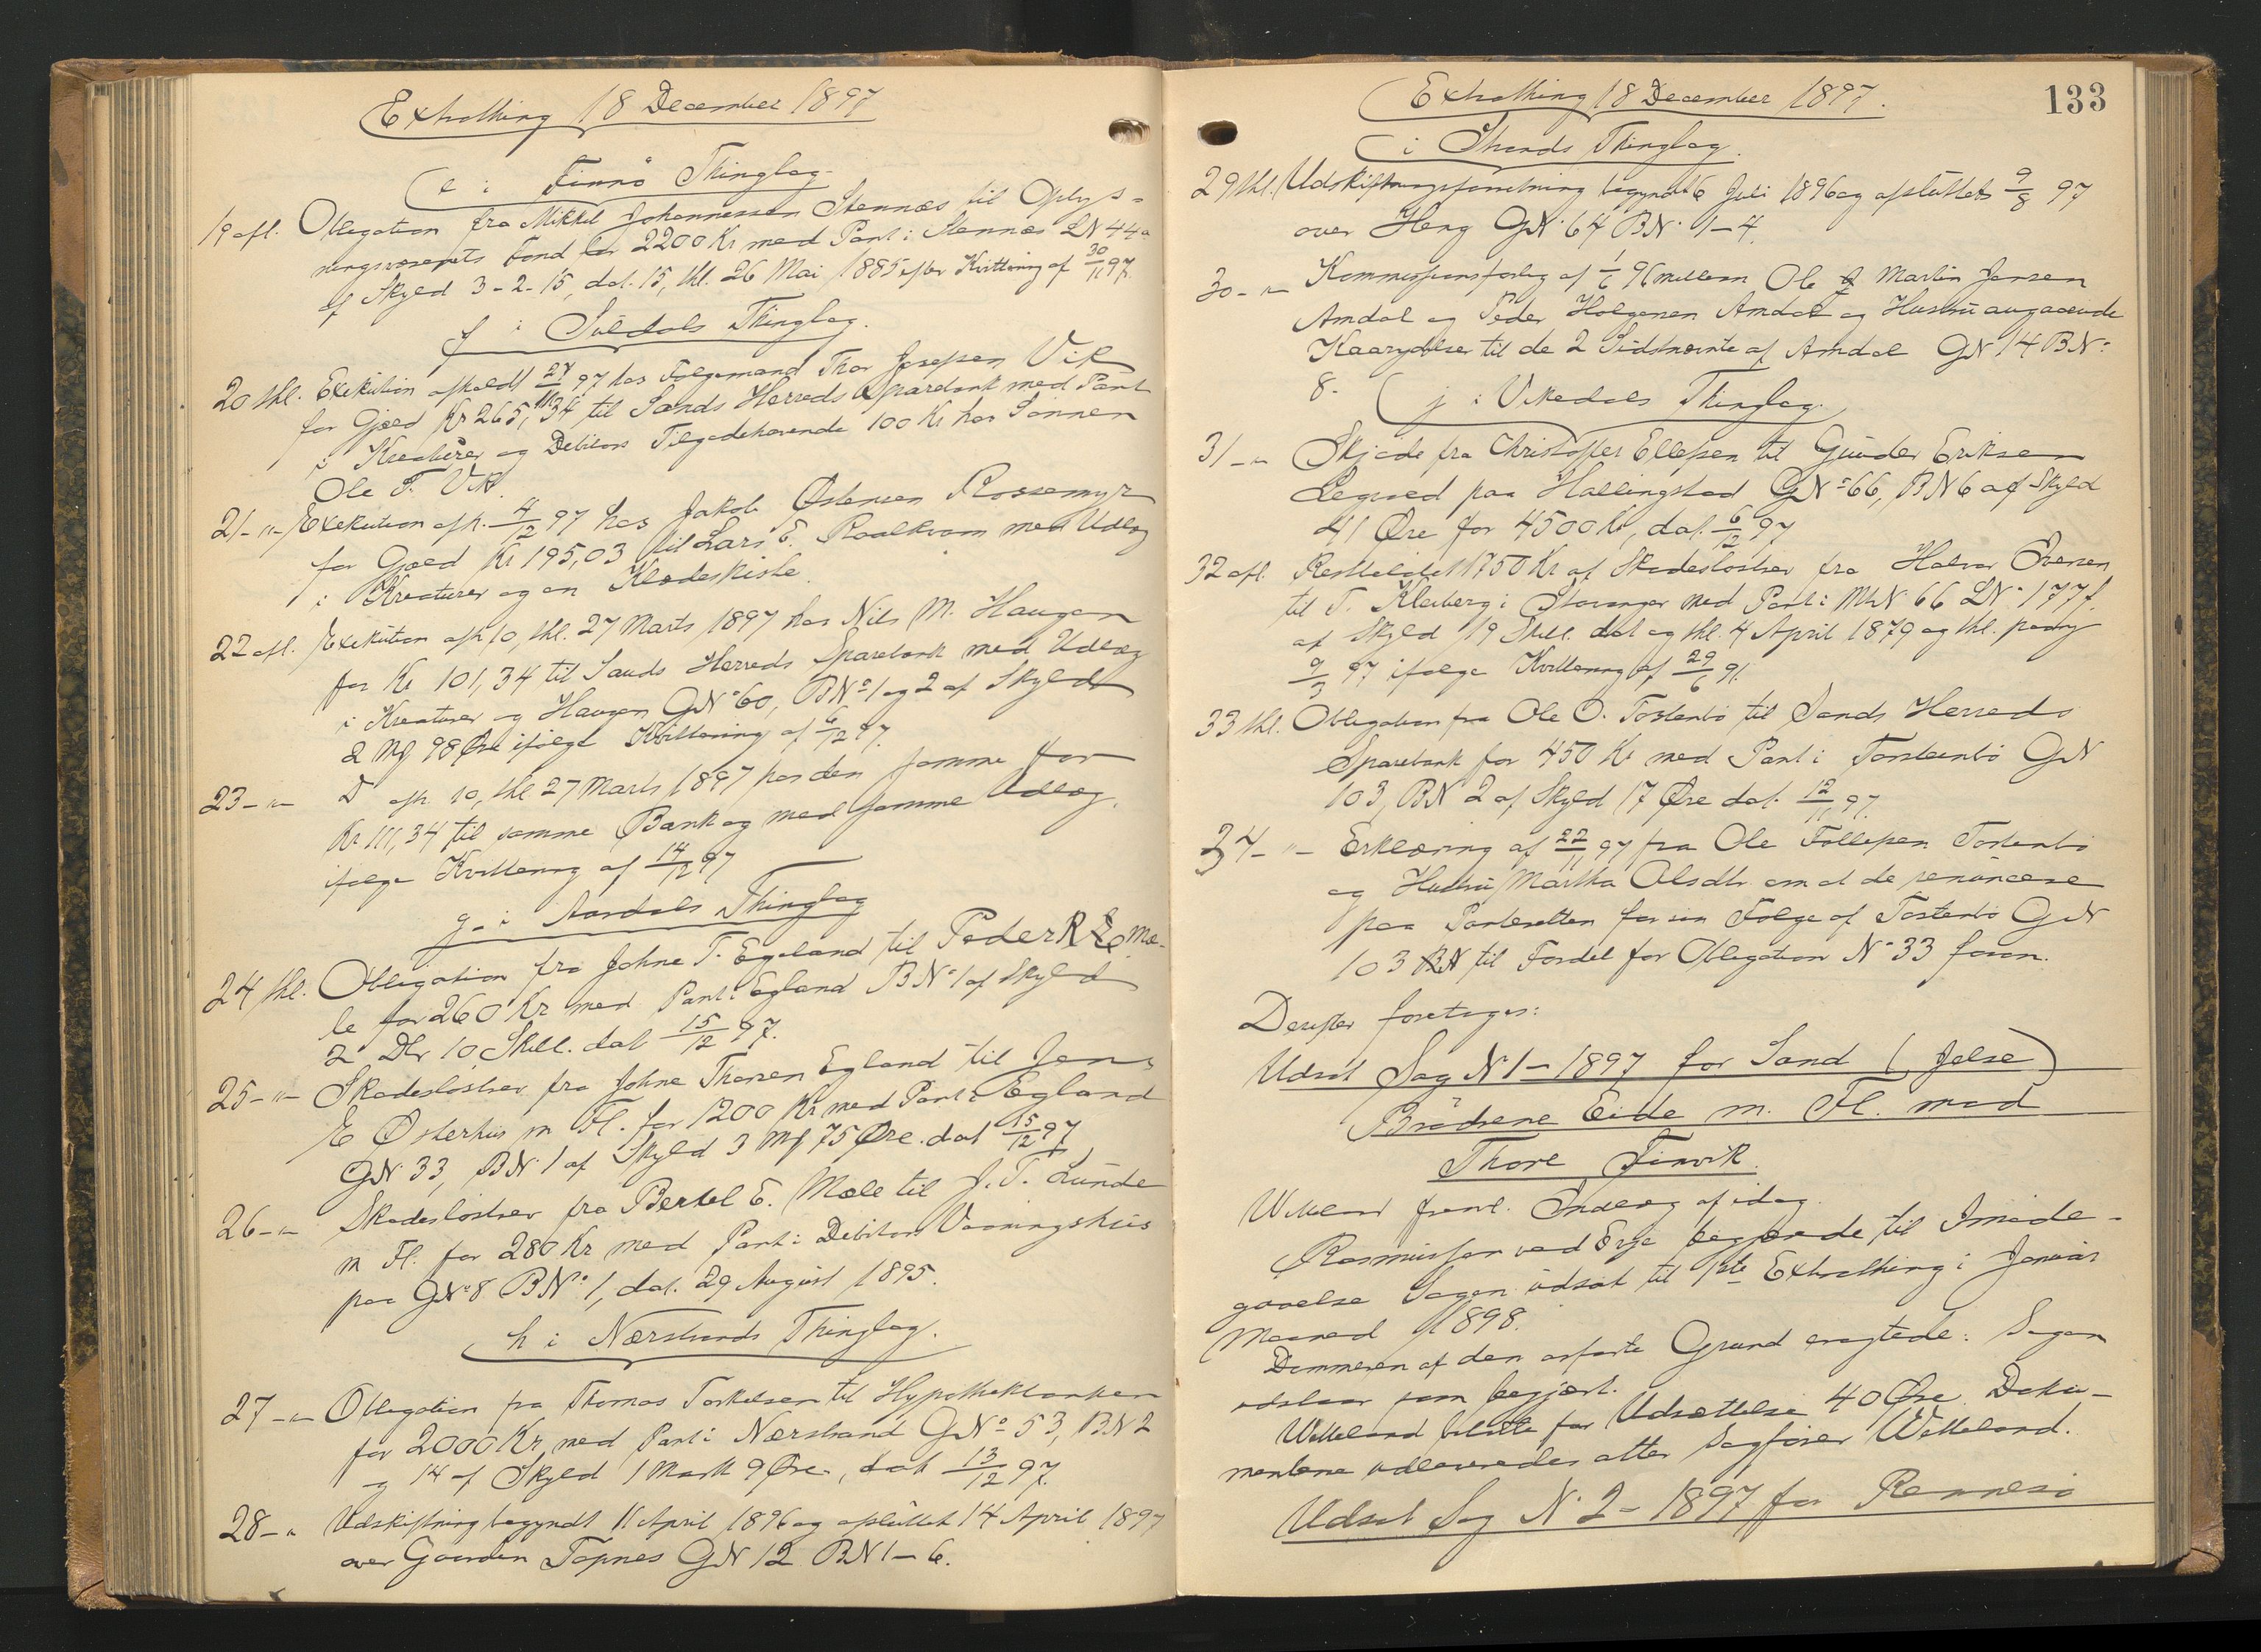 Extrathing 18 December 1897
e i Finnö Thinglag.
19 afl. Obligation fra Mikkel Johannessen Stennæs til Oplys-
ningsvæsenets Fond for 2200 Kr med Pant i Stennæs LN 44a
af Skyld 3-2-15, dat. 15, thl. 26 Mai 1885 efter Kvittering af 30/11 97.
f i Suldals Thinglag.
20 thl. Exekution afholdt 24/11 97 hos Følgemand Thor Josefsen Vik
for Gjæld Kr 265,34 til Sands Herreds Sparebank med Pant
i Kreaturer og Debitors Tilgodehavende 100 Kr hos Sønnen
Ole T. Vik.
21 -"- Exekution afh. 4/12 97 hos Jakob Østensen Rossemyr
for Gjæld Kr 195,03 til Lars E. Roalkvam med Udlæg
i Kreaturer og en Klædeskiste.
22 afl. Exekution afh 10, thl. 27 Marts 1897 hos Nils M. Haugen
for Kr 101,34 til Sands Herreds Sparebank med Udlæg
i Kreaturer og Haugen GNo 60, BNo 1 og 2 af Skyld
2 Mk 98 Øre ifølge Kvittering af 6/12 97.
23 -"- Do afh. 10, thl 27 Marts 1897 hos den samme for
Kr 111,34 til samme Bank og med samme Udlæg,
ifølge Kvittering af 14/12 97
g. i Aardals Thinglag
24 thl. Obligation fra Johne T. Egeland til Peder R Mæ-
le for 260 Kr med Pant i Egland BNo 1 af Skyld
2 Dlr 10 Skill. dat 15/12 97.
25 -"- Skadesløsbrev fra Johne Thorsen Egland til Jens
E Østerhus m Fl. for 1200 Kr med Pant i Egland
GN 33, BN 1 af Skyld 3 Mk 75 Øre. dat 15/12 97
26 -"- Skadesløsbrev fra Bertel E. Mæle til J. T. Lunde
m Fl. for 280 Kr med Pant i Debitors Vaaningshus
paa GNo 8 BNo 1, dat. 29 August 1895.
h i Nærstrands Thinglag.
27 -"- Obligation fra Thomas Torkelsen til Hypothekbanken
for 2000 Kr med Pant i Nærstrand GNo 53, BN 2
og 14 af Skyld 1 Mark 9 Øre, dat 13/12 97.
28 -"- Udskiftning begyndt 11 April 1896 og afsluttet 14 April 1897
over Gaarden Topnes GN 12 BN 1-6.
Extrathing 18 December 1897.
133
i Strands Thinglag.
29 thl. Udskiftningsforretning begyndt 6 Juli 1896 og afsluttet 9/8 97
over Heng GN. 64 BN. 1-4.
30 -"- Kommissionsforlig af 1/6 96 mellem Ole Martin Jensen
Amdal og Peder Halgenen Amdal og Hustru angaaende
Kaarydelser til de 2 Sidstnævnte af Amdal GN 14 BN:
8. j i Vikedals Thinglag.
31 -"- Skjøde fra Christoffer Ellefsen til Gunder Eriksen
paa Hallingstad GNo 66, BN 6 af Skyld
41 Øre for 4500 Kr, dat. 6/12 97
32 afl. Restbeløbet 1750 Kr af Skadesløsbrev fra Halvor Iversen
til T. Kleiberg i Stavanger med Pant i MN 66 LNo 177f.
af Skyld 19 Skill. dat og thl. 4 April 1879 og thl. paany
9/3 97 ifølge Kvittering af 29/6 91.
33 thl. Obligation fra Ole O. Tostenbö til Sands Herreds
Sparebank for 450 Kr med Pant i Torsteinbö GN
103, BN 2 af Skyld 17 Øre dat. 12/11 97.
34 -"- Erklæring af 22/11 97 fra Ole Tollefsen Tostenbö
og Hustru Martha Olsdtr. om at de renuncere
paa Panteretten for sin Folge af Tostenbö GN
103 BN til Fordel for Obligation No 33 foran.
Derefter foretoges:
Udsat Sag No 1 - 1897 for Sand (Jelse)
Brødrene Eide m. Fl. mod
Thore Finvik
Wetteland freml. Indlæg af idag.
Rasmussen ved Erge begjærede til Imøde-
gaaelse Sagen udsat til 1ste Extrathing i Januar
Maaned 1898.
Dommeren af den anførte Grund eragtede: Sagen
udstaar som begjært.
Wetteland betalte for Udsættelse 40 Øre. Doku-
menterne udleveredes atter Sagfører Wetteland.
Udsat Sag No 2 - 1897 for Rennesö